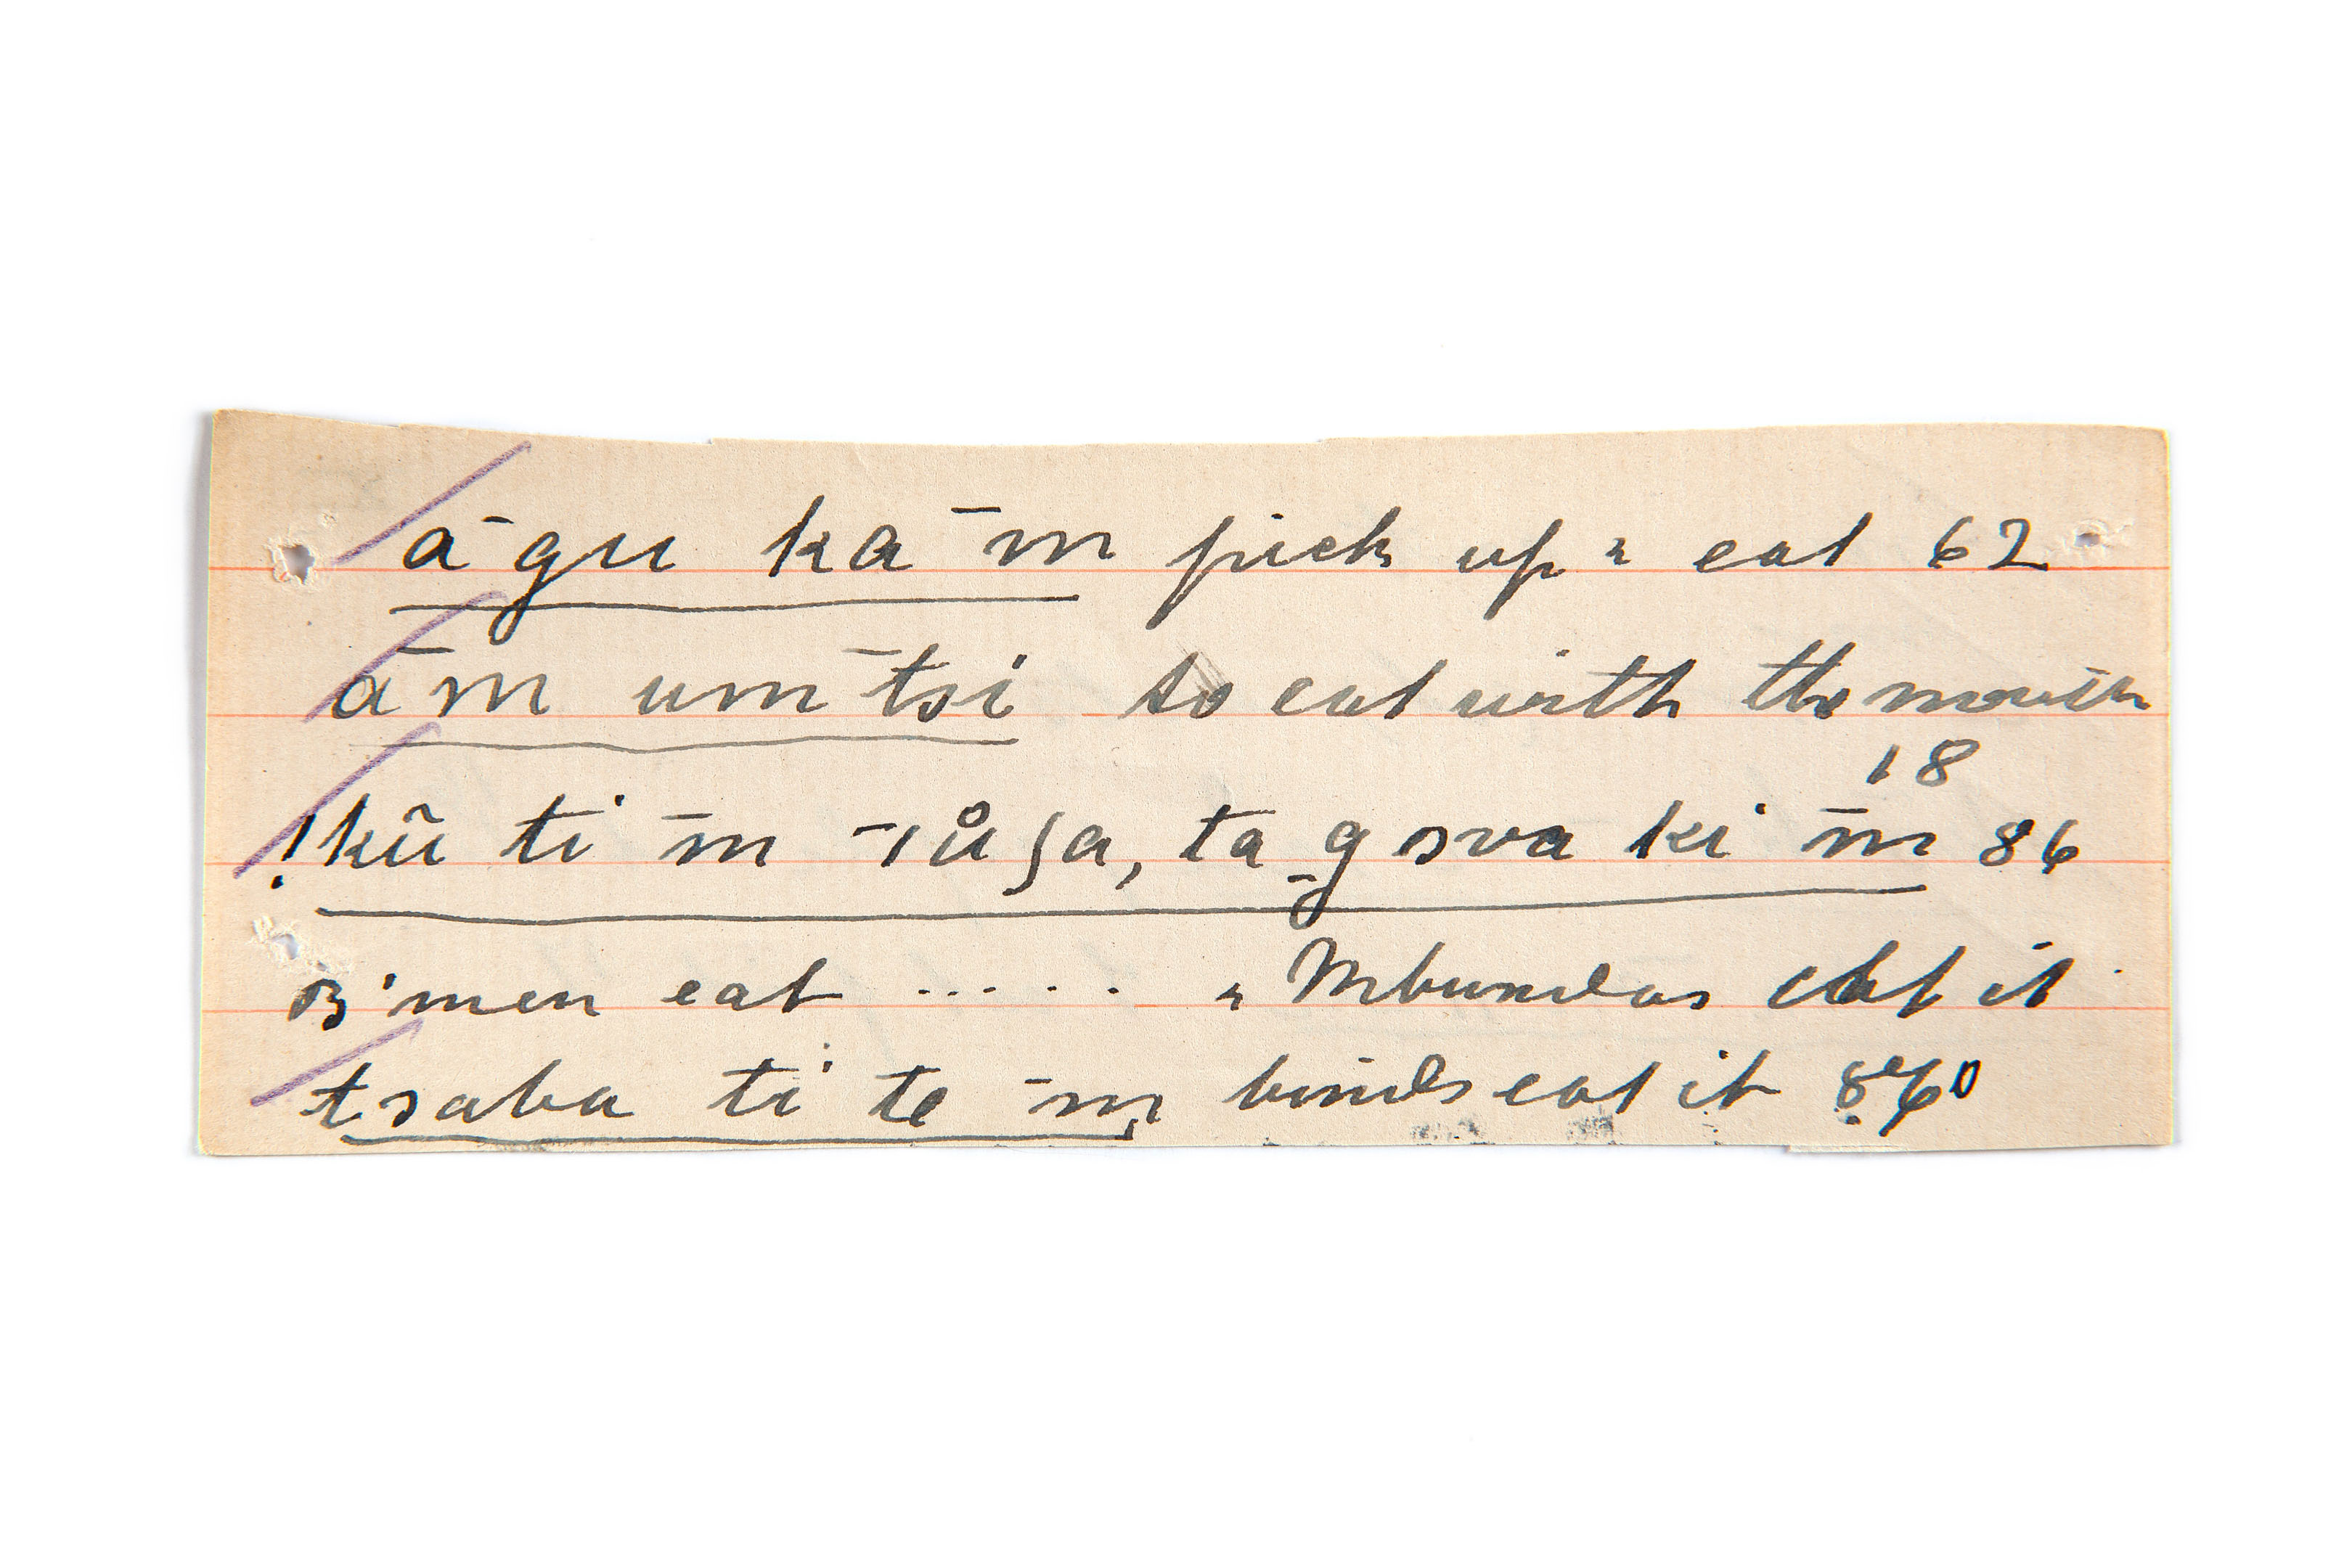 ā gu ka m̄ pick up & eat 62
ām um ̄tsi to eat with the mouth
18
!kũ ti m̄ ta g ova ki m̄ 86
B'men eat ..... & Mbundas eat it
tsaba ti te m̄ birds eat it